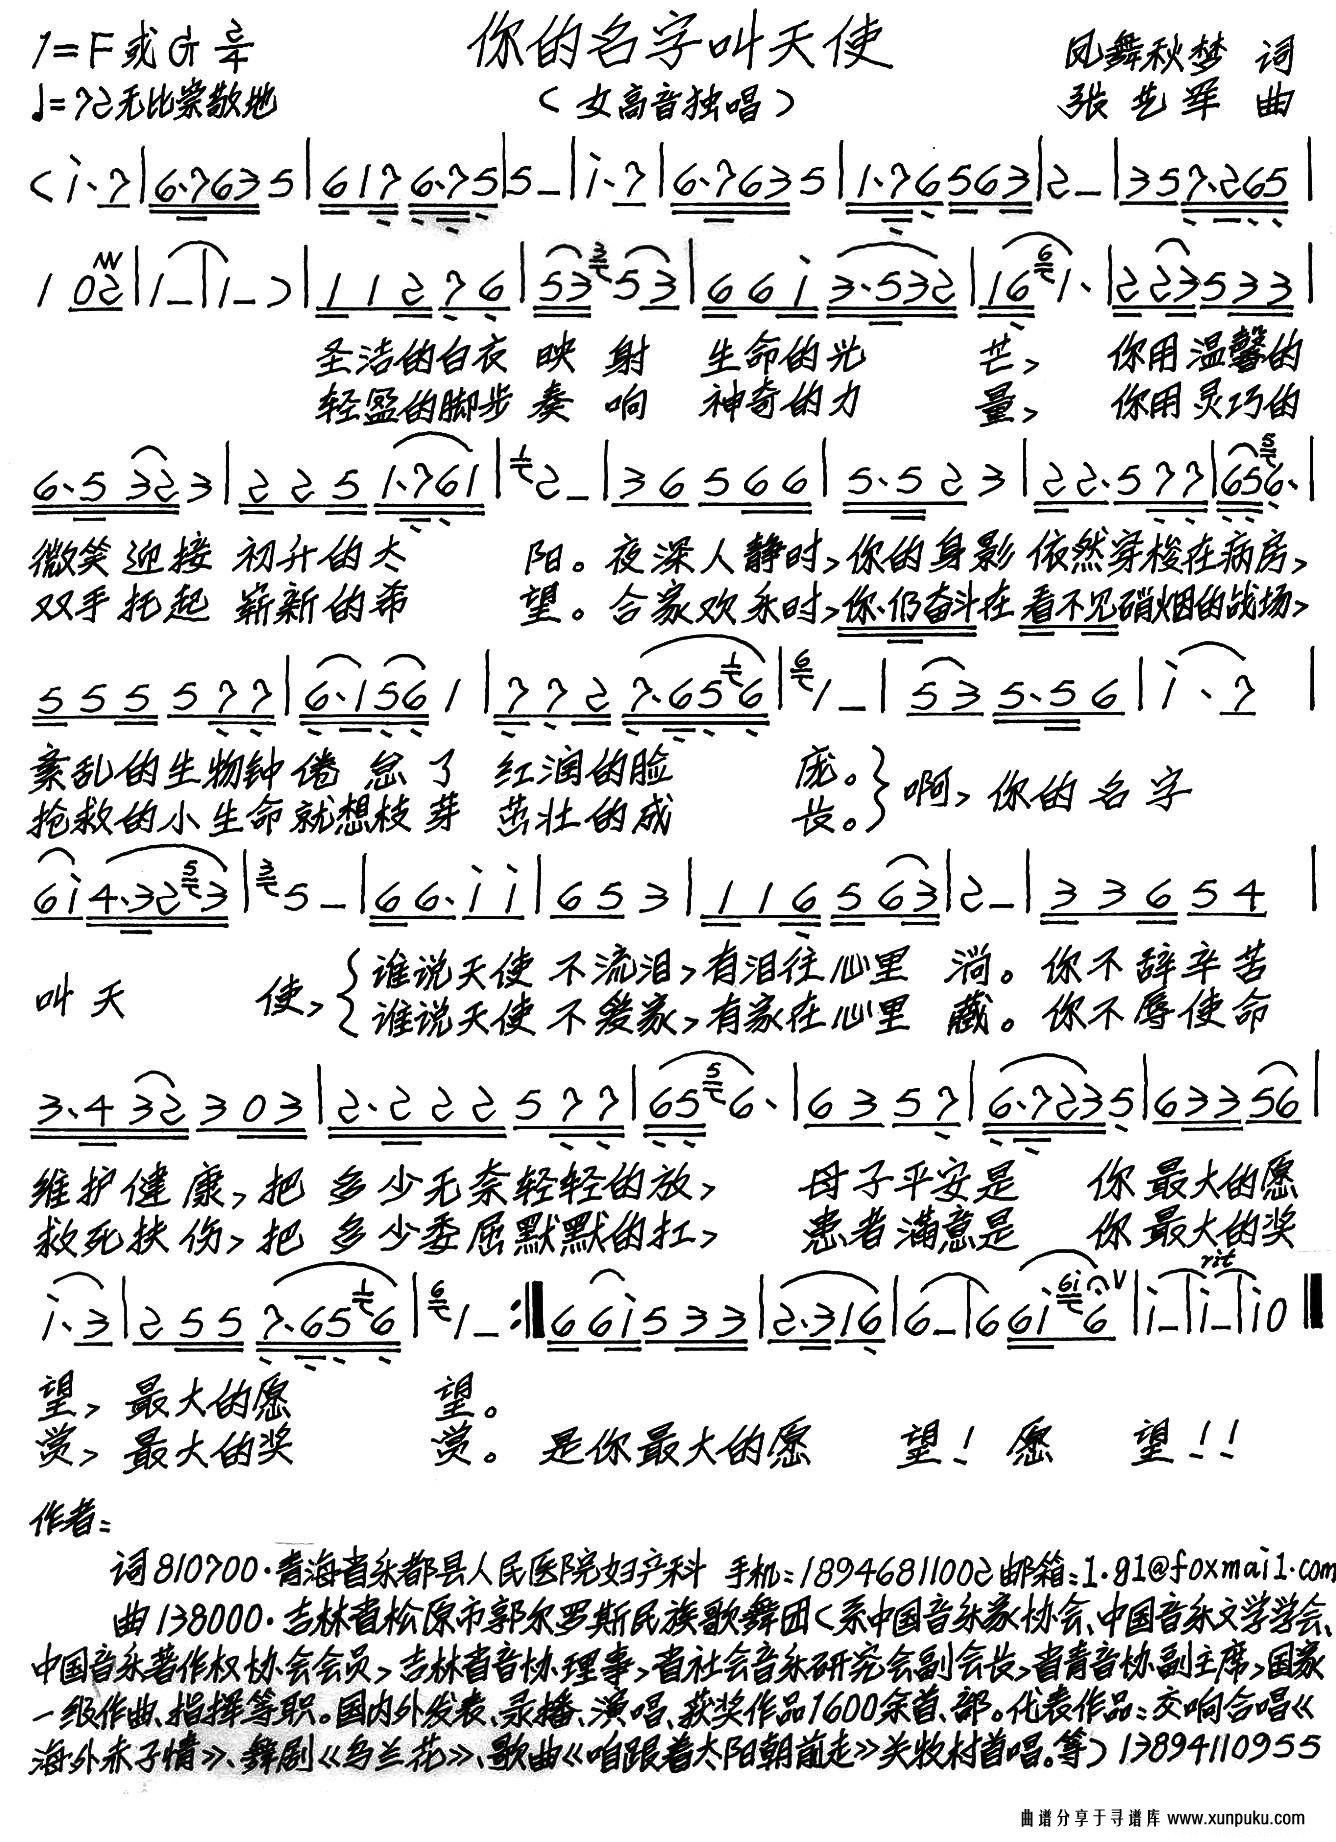 1=F或G 2/4 你的名字叫天使 凤舞秋梦 词
♩=72无比崇敬地 (女高音独唱) 张艺军 曲
(i·7|6·7635|6176·75|5-|i·7|6·7635|1·76563|2-|357·265|
1 02|1-|1-)|11276|53 53|66i3·532|16 1·|223533|
圣洁的白衣映射 生命的光 芒, 你用温馨的
轻盈的脚步奏响 神奇的力 量, 你用灵巧的
6·5 323|2251·761|2-|36566|5·523|22·577|656·|
微笑迎接 初升的太 阳。夜深人静时,你的身影 依然穿梭在病房,
双手托起 崭新的希 望。合家欢乐时,你仍奋斗在 看不见硝烟的战场,
555577|6·1561|7727·656|1-|535·56|i·7|
紊乱的生物钟倦怠了 红润的脸 庞。 啊, 你的名字
抢救的小生命就想枝芽 茁壮的成 长。
6i4·323|5-|66·ii|653|116563|2-|33654|
叫天 使, 谁说天使不流泪,有泪往心里 淌。你不辞辛苦
谁说天使不爱家,有家在心里 藏。你不辱使命
3·432303|2·222577|656·|6357|6·7235|63356|
维护健康,把 多少无奈轻轻的放, 母子平安是 你最大的愿
救死扶伤,把 多少委屈默默的扛, 患者满意是 你最大的奖
rit
i·3|2557·656|1-:‖66i533|2·316|6-|66i6|i-|i-|i0‖
望, 最大的愿 望。
赏, 最大的奖 赏。是你最大的愿 望! 愿 望!!
作者:
词810700·青海省乐都县人民医院妇产科 手机:18946811002邮箱:1.91@foxmail.com
曲138000·吉林省松原市郭尔罗斯民族歌舞团(系中国音乐家协会、中国音乐文学学会、
中国音乐著作权协会会员,吉林省音协理事,省社会音乐研究会副会长,省青音协副主席,国家
一级作曲、指挥等职。国内外发表、录播、演唱、获奖作品1600余首、部。代表作品:交响合唱《
海外赤子情》、舞剧《乌兰花》、歌曲《咱跟着太阳朝前走》关牧村首唱。等)13894110955
曲谱分享于寻谱库 www.xunpuku.com